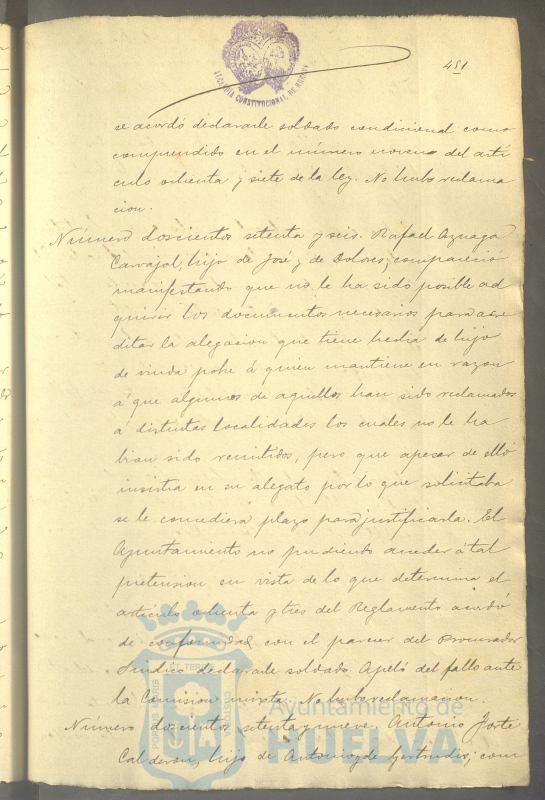 451
ALCALDIA CONSTITUCIONAL DE HUELVA
se acordó declararle soldado condicional como
comprendido en el número noveno del artí
culo ochenta y siete de la ley. No hubo reclama
cion.
Número doscientos setenta y seis. Rafael Azuaga
Carvajal, hijo de José y de Dolores; compareció
manifestando que no le ha sido posible ad
quirir los documentos necesarios para acre
ditar la alegacion que tiene hecha de hijo
de viuda pobre á quien mantiene en razon
á que algunos de aquellos han sido reclamados
á distintas localidades los cuales no le ha
bian sido remitidos, pero que apesar de ello
insistia en su alegato por lo que solicitaba
se le concediera plazo para justificarla. El
Ayuntamiento no pudiendo acceder á tal
pretension en vista de lo que determina el
artículo ochenta y tres del Reglamento acordó
de conformidad con el parecer del Procurador
Síndico declararle soldado. Apeló del fallo ante
la Comision mixta. No hubo reclamacion.
Número doscientos setenta y nueve. Antonio Jorte
Calderon, hijo de Antonio y de Gertrudis; com
Ayuntamiento de
HUELVA